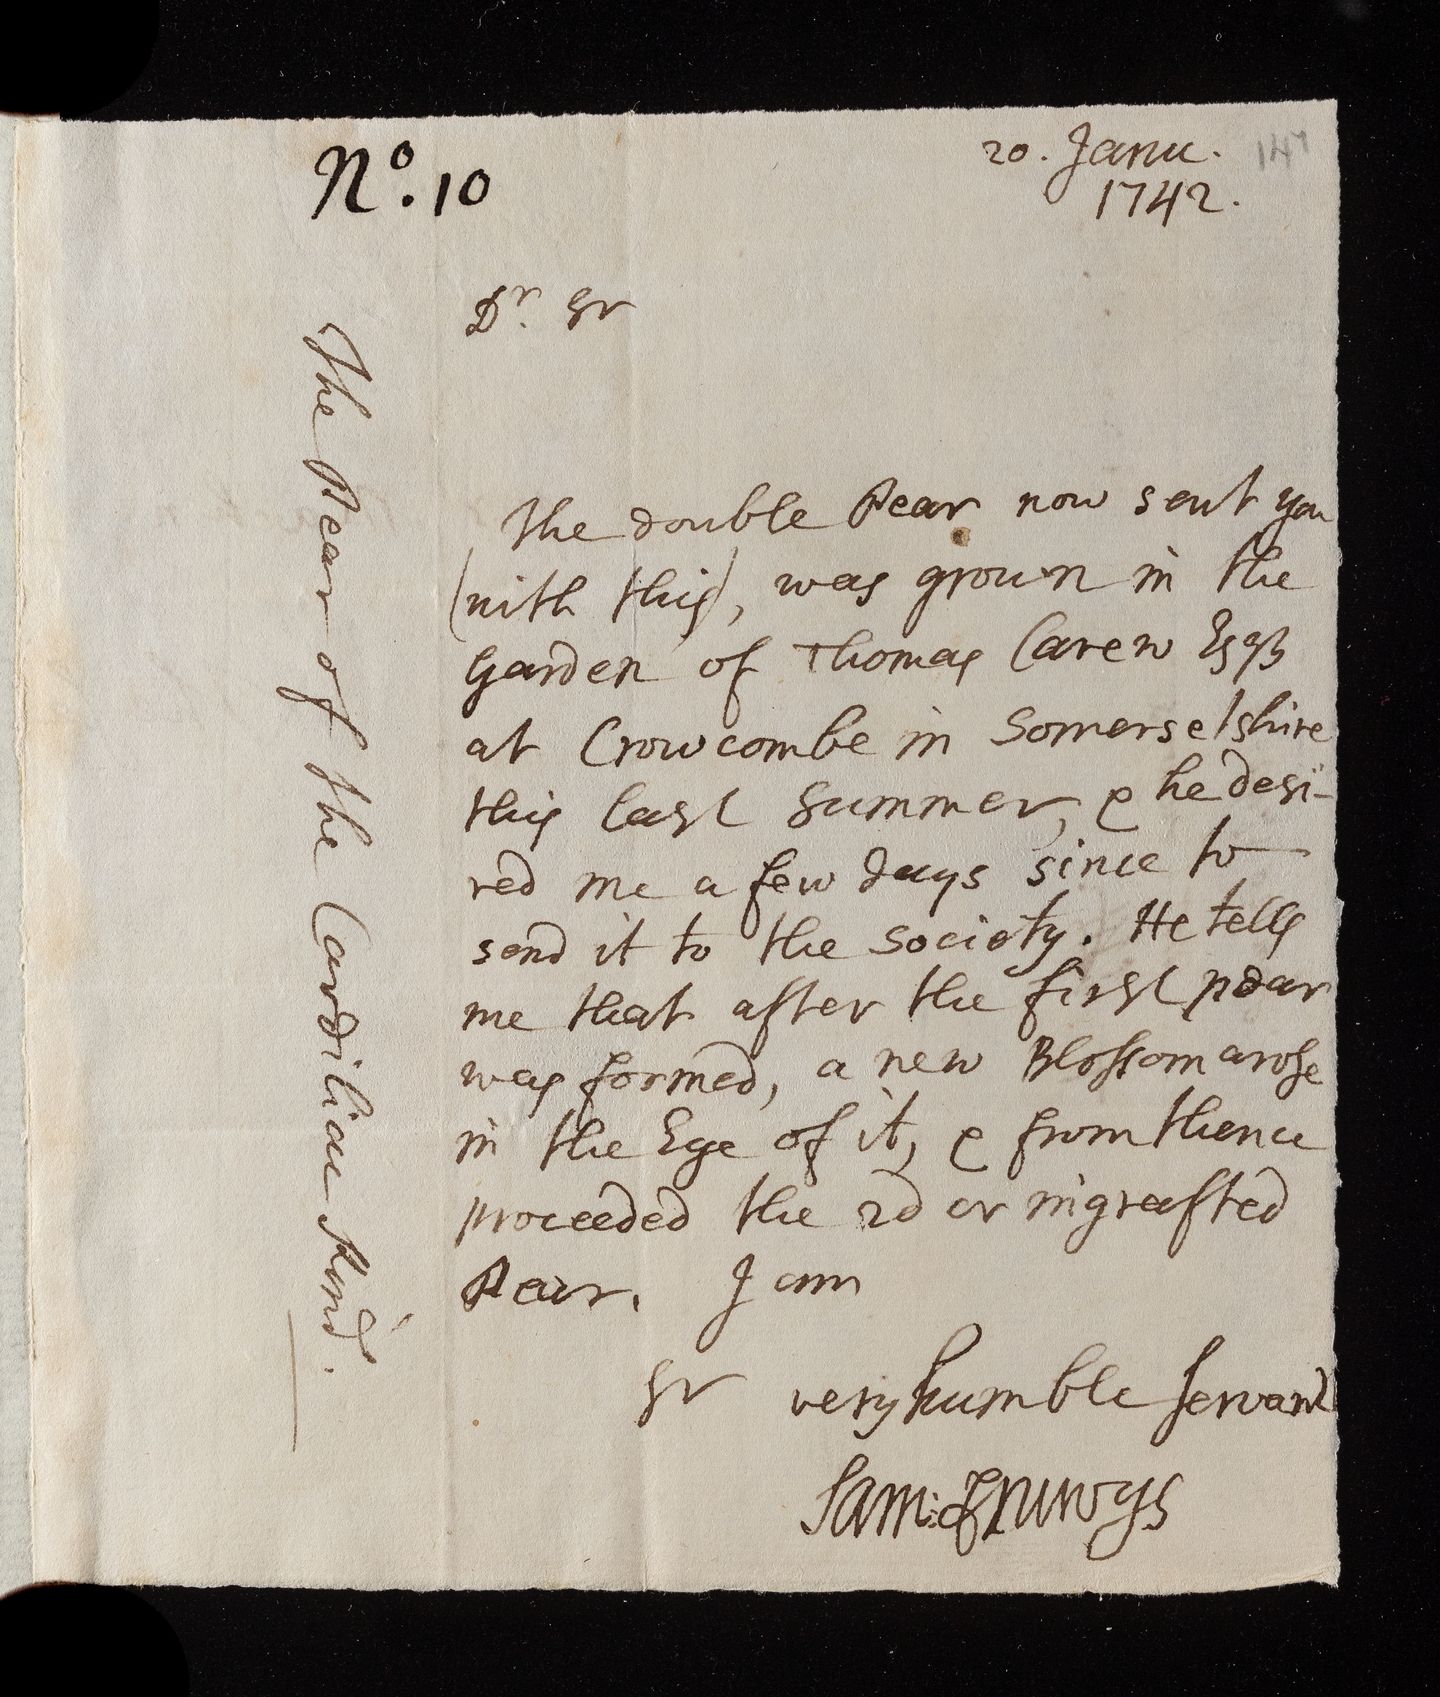 No. 10
20. Janu.
1742.
147
Dr. Sr
The double Pear now sent you
(with this), was grown in the
Garden of Thomas Carew Esqr
at Crowcombe in Somersetshire
this last Summer, & he desi-
red me a few days since to
send it to the Society. He tells
me that after the first pear
was formed, a new Blossom arose
in the Eye of it, & from thence
proceeded the 2d or ingrafted
Pear. I am
Sr very humble Servant
Sam:
The Pear of the Cardiliac kind.